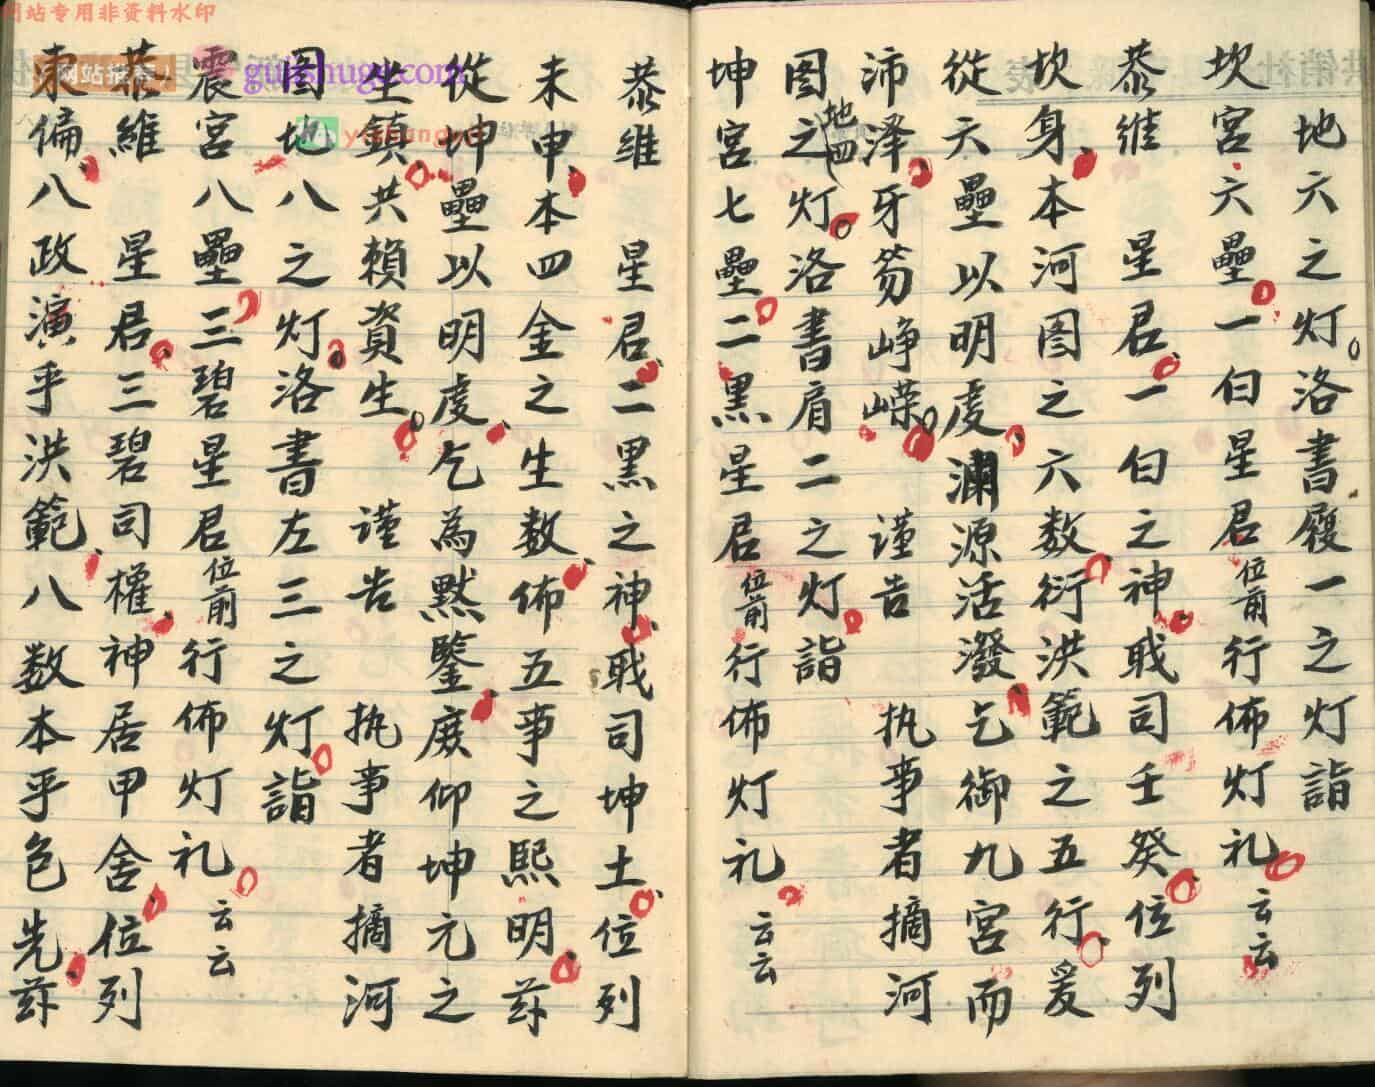 网站专用非资料水印
地六之灯洛書履一之灯詣
坎宮六壘一白星君位前行佈灯礼云云
恭維 星君一白之神戝司壬癸位列
坎身本河图之六数衍洪範之五行爰
從六壘以明虔瀾源活潑乞御九宮而
沛泽牙笏崢嶸 谨告 执事者摘河
图之地四灯洛書肩二之灯詣
坤宮七壘二黑星君位前行佈灯礼云云
恭維 星君二黑之神戝司坤土位列
未申本四金之生数佈五事之熙明茲
從坤壘以明虔乞為默鑒庶仰坤元之
坐鎮共賴資生 谨告 执事者摘河
图地八之灯洛書左三之灯詣
震宮八壘三碧星君位前行佈灯礼云云
恭維 星君三碧司權神居甲舍位列
東偏八政演乎洪範八数本乎色先茲
gujishuge.com